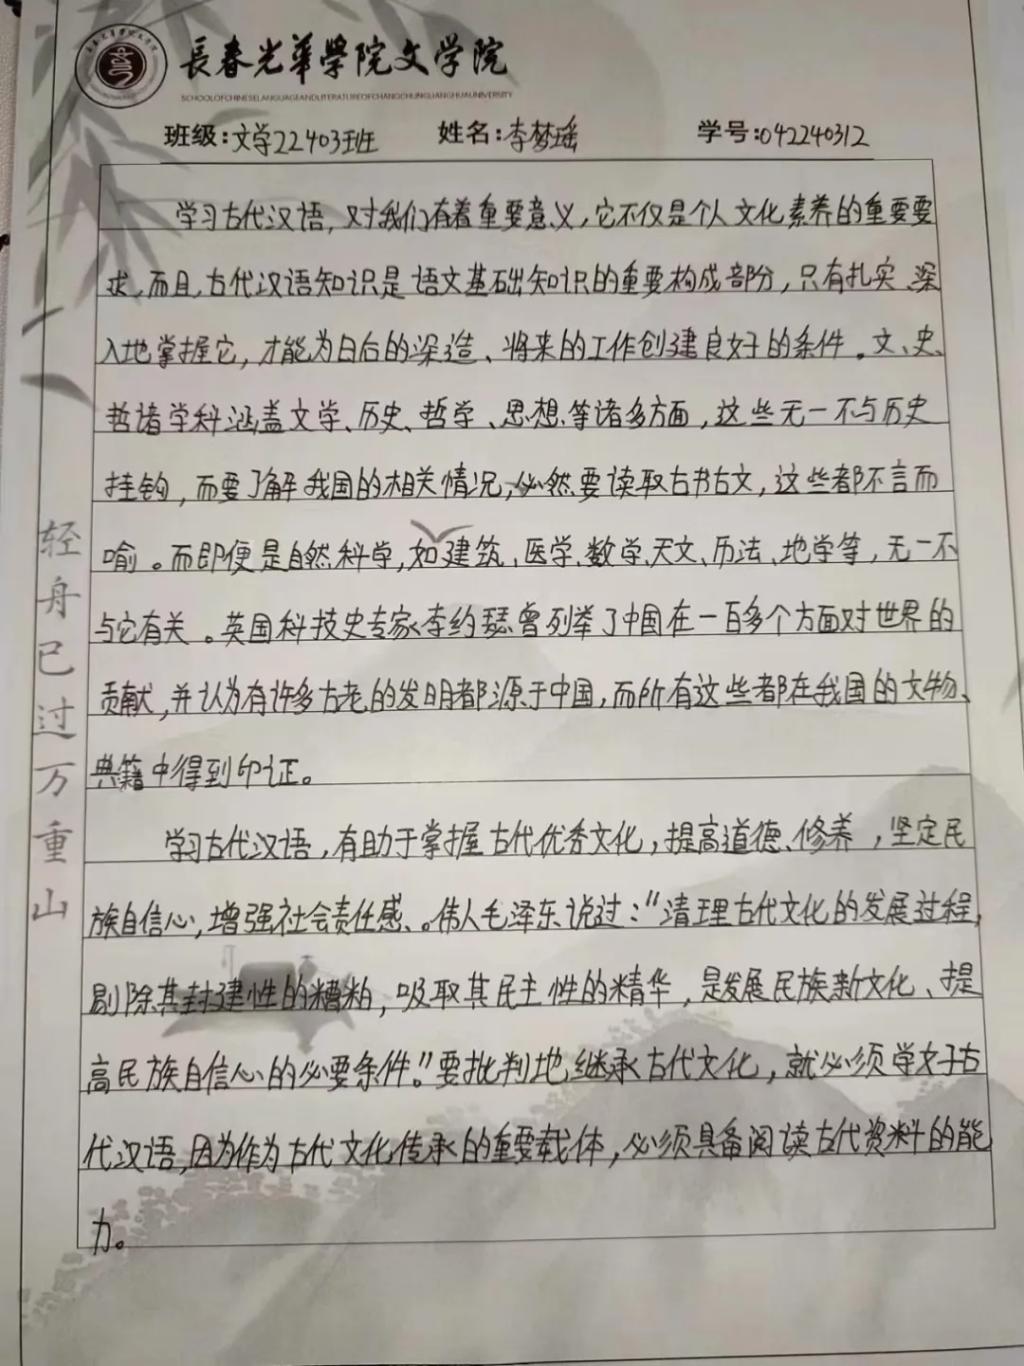 長春光華學院文学院
SCHOOLOFCHINESELANGUAGEANDLITERATUREOFCHANGCHUNGUANGHUAUNIVERSITY
班级:文学22403班班 姓名:李梦瑶 学号:042240312
学习古代汉语,对我们有着重要意义,它不仅是个人文化素养的重要要
求,而且,古代汉语知识是语文基础知识的重要构成部分,只有扎实、深
入地掌握它,才能为日后的深造、将来的工作创建良好的条件。文、史、
哲诸学科涵盖文学、历史、哲学、思想等诸多方面,这些无一不与历史
挂钩,而要了解我国的相关情况,必然要读取古书古文,这些都不言而
喻。而即便是自然科学,如建筑、医学、数学、天文、历法、地学等,无一不
与它有关。英国科技史专家李约瑟曾列举了中国在一百多个方面对世界的
贡献,并认为有许多古老的发明都源于中国,而所有这些都在我国的文物、
典籍中得到印证。
学习古代汉语,有助于掌握古代优秀文化,提高道德、修养,坚定民
族自信心,增强社会责任感、。伟人毛泽东说过:"清理古代文化的发展过程,
剔除其封建性的糟粕,吸取其民主性的精华,是发展民族新文化、提
高民族自信心的必要条件。"要批判地继承古代文化,就必须学好古
代汉语,因为作为古代文化传承的重要载体,必须具备阅读古代资料的能
力。
轻舟已过万重山